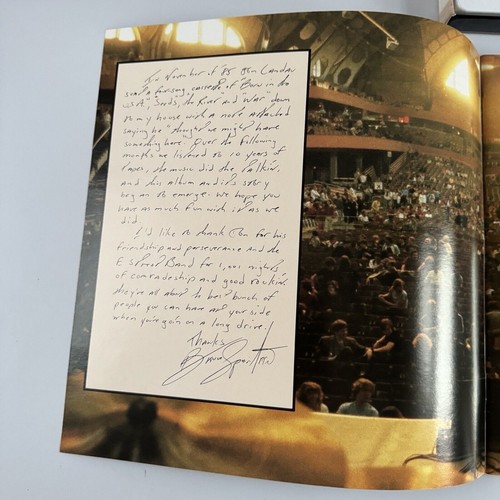 In November of '85 Jon Landau
sent a four song cassette of "Born in the
U.S.A.", Seeds, the River and "War" down
to my house with a note attached
saying he "thought we might have
something here." Over the following
months we listened to 10 years of
tapes, the music did the talkin',
and this album and it's story
began to emerge. We hope you
have as much fun with it as we
did.
I'd like to thank Jon for his
friendship and perseverance and the
E Street Band for 1,001 nights
of comradeship and good rockin'.
They're all about the best bunch of
people you can have at your side
when you're goin' on a long drive.
Thanks
Bruce Springsteen